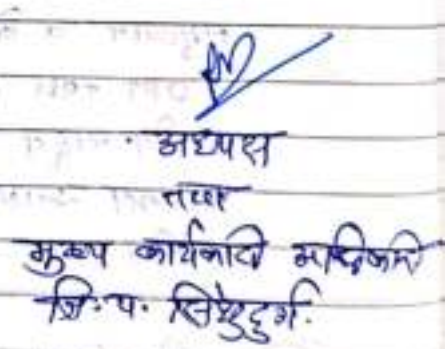 अध्यक्ष
तथा
मुख्य कार्यकारी अधिकारी
जि. प. सिंधुदुर्ग.